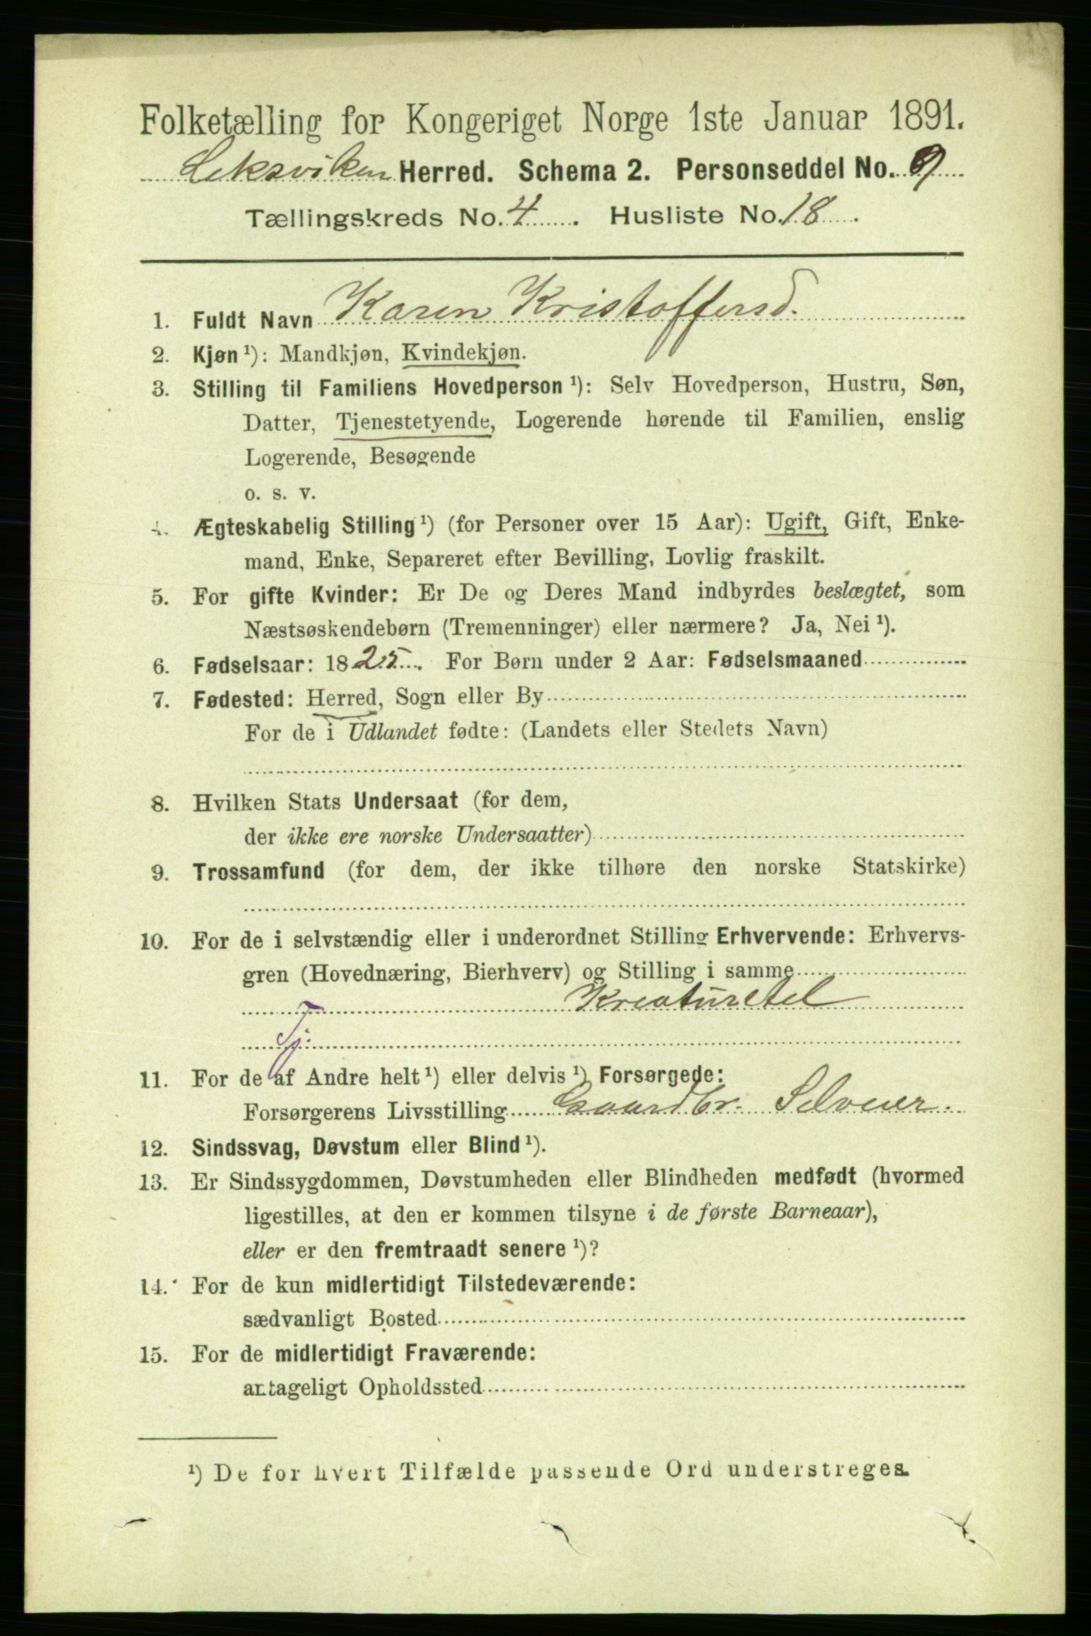 Folketælling for Kongeriget Norge 1ste Januar 1891.
Leksviken Herred. Schema 2. Personseddel No. 9
Tællingskreds No. 4. Husliste No. 18.
1. Fuldt Navn Karen Kristoffersd.
2. Kjøn ¹): Mandkjøn, Kvindekjøn.
3. Stilling til Familiens Hovedperson ¹): Selv Hovedperson, Hustru, Søn,
Datter, Tjenestetyende, Logerende hørende til Familien, enslig
Logerende, Besøgende
o. s. v.
4. Ægteskabelig Stilling ¹) (for Personer over 15 Aar): Ugift, Gift, Enke-
mand, Enke, Separeret efter Bevilling, Lovlig fraskilt.
5. For gifte Kvinder: Er De og Deres Mand indbyrdes beslægtet, som
Næstsøskendebørn (Tremenninger) eller nærmere? Ja, Nei ¹).
6. Fødselsaar: 1825. For Børn under 2 Aar: Fødselsmaaned
7. Fødested: Herred, Sogn eller By
For de i Udlandet fødte: (Landets eller Stedets Navn)
8. Hvilken Stats Undersaat (for dem,
der ikke ere norske Undersaatter)
9. Trossamfund (for dem, der ikke tilhøre den norske Statskirke)
10. For de i selvstændig eller i underordnet Stilling Erhvervende: Erhvervs-
gren (Hovednæring, Bierhverv) og Stilling i samme
Kreaturstel
Tj:
11. For de af Andre helt ¹) eller delvis ¹) Forsørgede:
Forsørgerens Livsstilling Gaardbr. Selveier.
12. Sindssvag, Døvstum eller Blind ¹).
13. Er Sindssygdommen, Døvstumheden eller Blindheden medfødt (hvormed
ligestilles, at den er kommen tilsyne i de første Barneaar),
eller er den fremtraadt senere ¹)?
14. For de kun midlertidigt Tilstedeværende:
sædvanligt Bosted
15. For de midlertidigt Fraværende:
antageligt Opholdssted
¹) De for hvert Tilfælde passende Ord understreges.